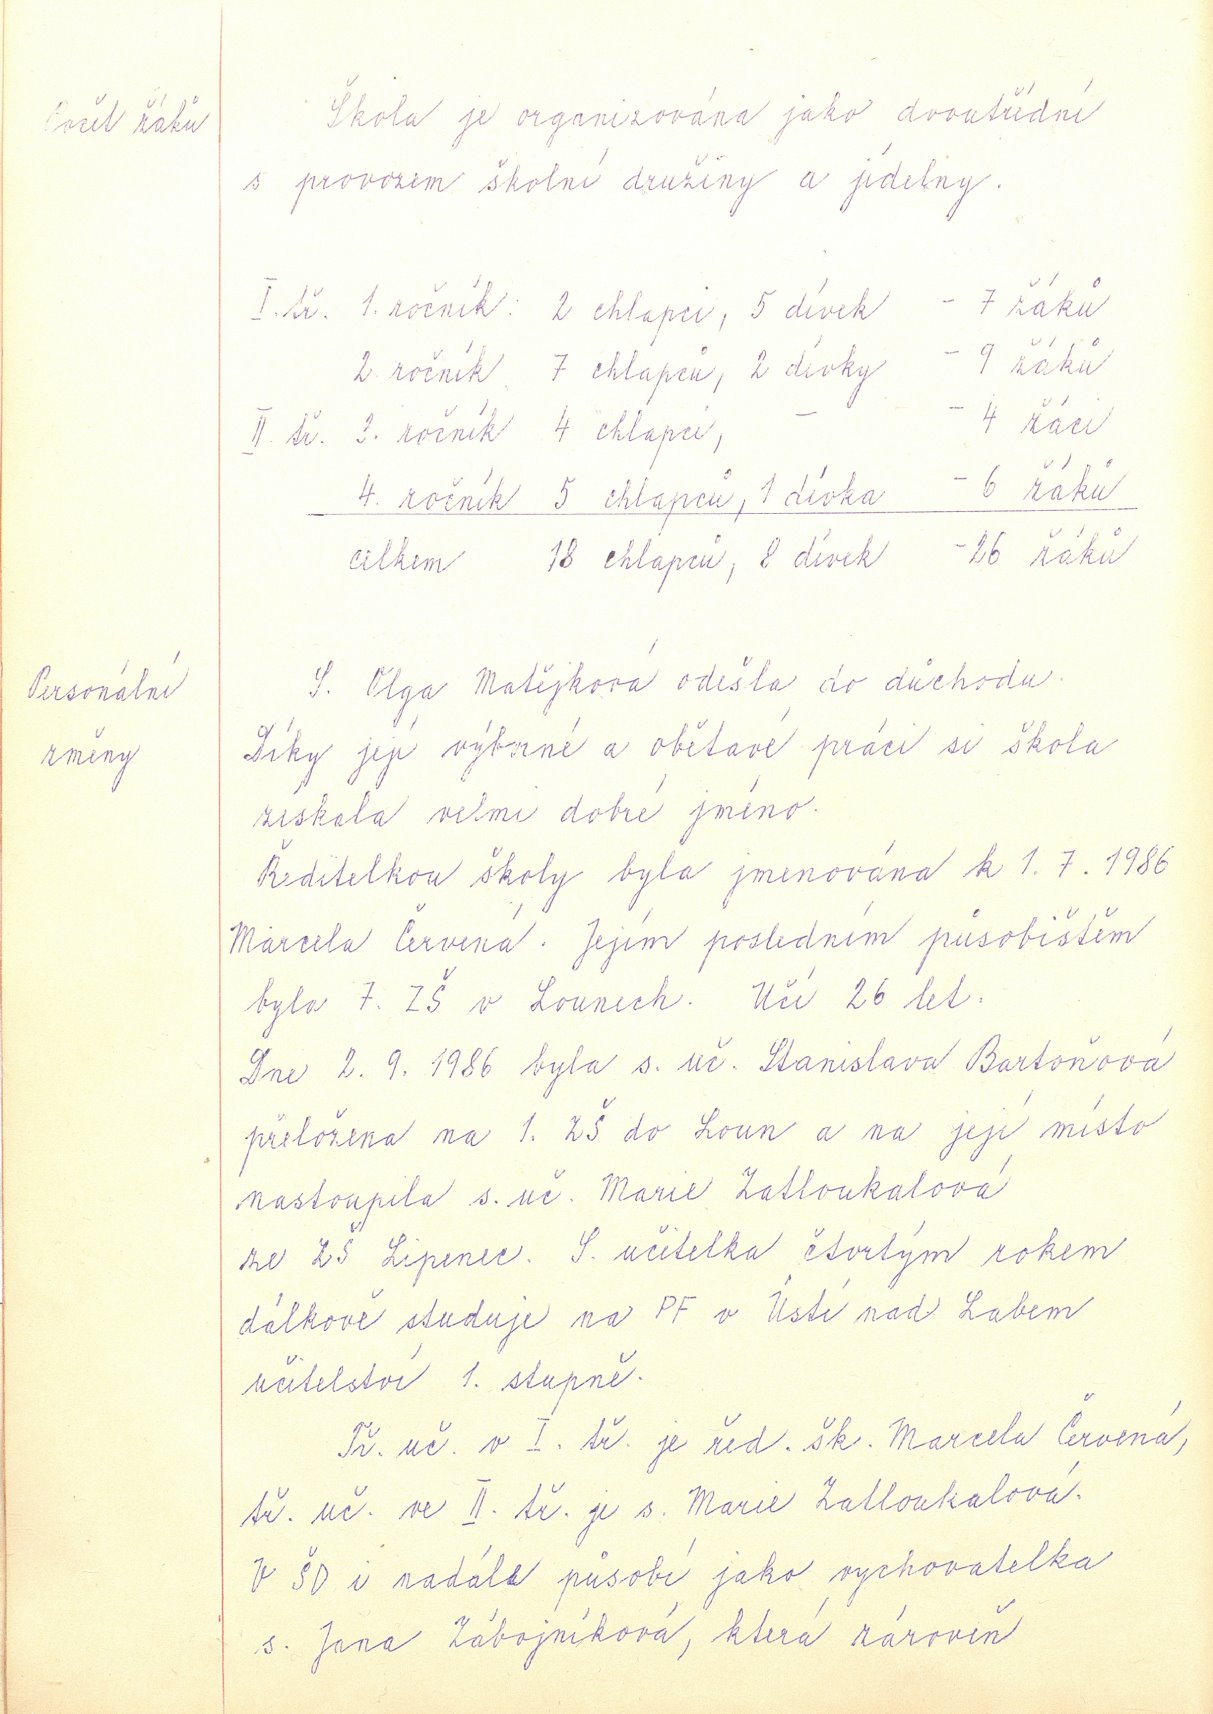 Počet žáků
Škola je organizována jako dvoutřídní
s provozem školní družiny a jídelny.
I. tř. 1. ročník: 2 chlapci, 5 dívek – 7 žáků
2. ročník 7 chlapců, 2 dívky – 9 žáků
II. tř. 3. ročník 4 chlapci, – – 4 žáci
4. ročník 5 chlapců, 1 dívka – 6 žáků
celkem 18 chlapců, 8 dívek – 26 žáků
Personální
změny
S. Olga Matějková odešla do důchodu.
Díky její výborné a obětavé práci si škola
získala velmi dobré jméno.
Ředitelkou školy byla jmenována k 1. 7. 1986
Marcela Červená. Jejím posledním působištěm
byla 7. ZŠ v Lounech. Učí 26 let.
Dne 2. 9. 1986 byla s. uč. Stanislava Bartoňová
přeložena na 1. ZŠ do Loun a na její místo
nastoupila s. uč. Marie Zatloukalová
ze ZŠ Lipenec. S. učitelka čtvrtým rokem
dálkově studuje na PF v Ústí nad Labem
učitelství 1. stupně.
Tř. uč. v I. tř. je řed. šk. Marcela Červená,
tř. uč. ve II. tř. je s. Marie Zatloukalová.
V ŠD i nadále působí jako vychovatelka
s. Jana Zábojníková, která zároveň